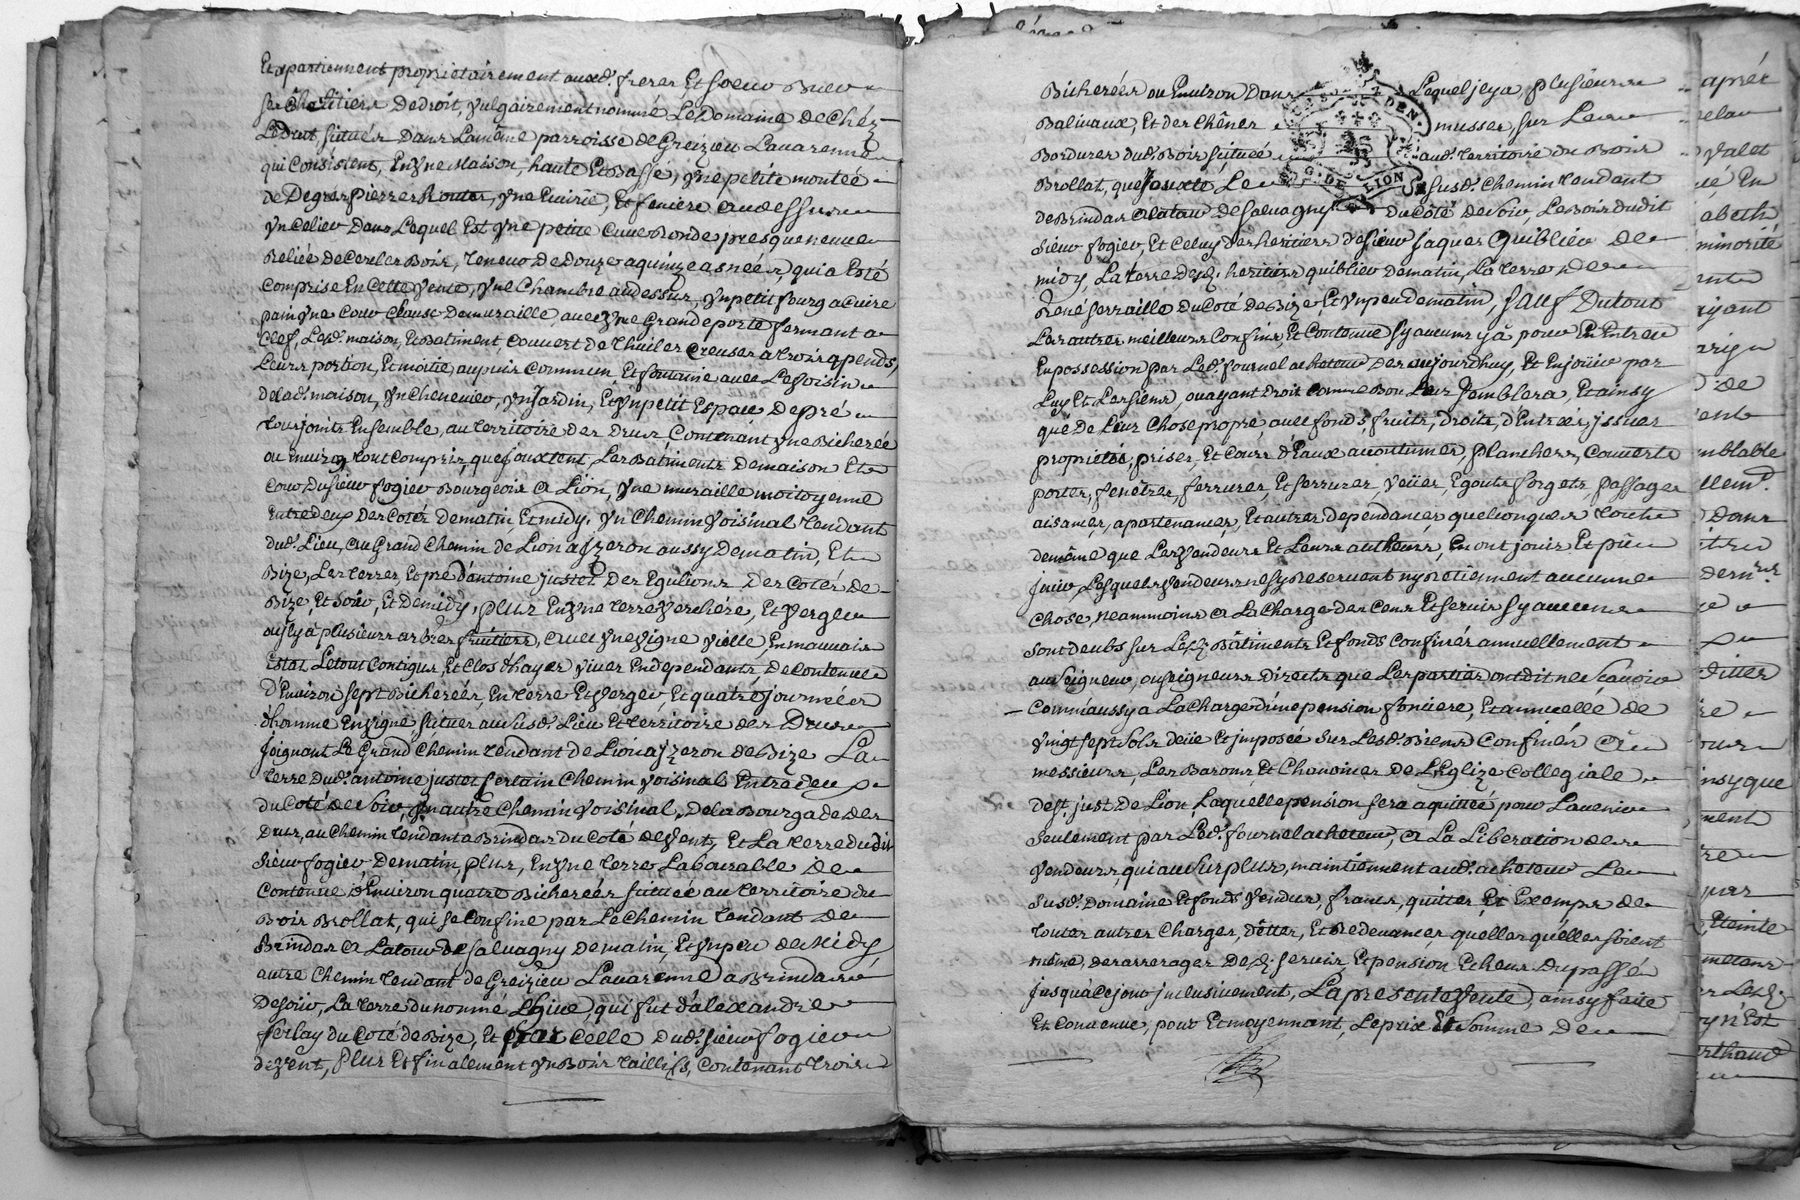 Et apartiennent proprietairement auxd. freres Et soeur Brev
ses Heritiers De droit, vulgairement nommé Le Domaine de Chéz
Le Drut situés Dans La même parroisse de Greizieu Lavarenne
qui Consistent, En Vne Maison, haute Et Basse, Vne petite montée
de Degres pierres Routes, Vne Ecuirie, Et feniere au dessus
Vn Celier Dans Lequel Est Vne petite Cuve Ronde presque neuve
Reliée De Cercles Bois, teneur De Douze a quinze asnées, qui a Esté
Comprise En Cette Vente, Vne Chambre au dessus, Vn petit fourg a Cuire
pain Vne Cour Clause De muraille, avec Vne Grande porte fermant a
Clef, Lesd. maison, Et Batiment, Couvert de thuiles Creuses a trois apends,
Leurs portion, Et moitié, au puis Commun, Et fontaine avec Le Voisin
De lad. maison, Vn Chenevier, Vn Jardin, Et Vn petit Espace De pré
tous joints Ensemble, au territoire des Drus, Contenant Vne Bicherée
ou Environ tout Compris, que jouxtent, Les Batiments De maison Et
Cour Du sieur fogier Bourgeois a Lion, Vne muraille moitoyenne
Entre deux Des Cotés De matin Et midy, Vn Chemin Voisinal tendant
dud. Lieu, au Grand Chemin de Lion a Jzeron aussy De matin, Et
Bize, Les terres, Et pré d'antoine justet Des Egulions Des Cotés De
Bize, Et Soir, Et De midy, plus En Vne terre Verchére, Et Verger
ou jl y a plusieurs arbres fruitiers, avec Vne Vigne Vielle, En mauvais
Estat, Le tout Contigus, Et Clos d'hayes Vives En dependants, De Contenue
d'Environ sept Bicherées, En terre Et Verger, Et quatre journées
d'homme En Vigne, situés au susd. Lieu Et territoire des Drus
Joignant Le Grand Chemin tendant de Lion a jzeron de Bize La
terre dud. antoine justet Certain Chemin Voisinal Entre deux
du Coté de Soir, Vn autre Chemin Voisinal, De la Bourgade des
Drus, au Chemin tendant a Brindas du Coté de Vent, Et La terre dudit
sieur fogier De matin, plus, En Vne terre Labourable De
Contenue d'Environ quatre Bicherées situeé au territoire du
Bois Brollat, qui se Confine par Le Chemin tendant de
Brindas a Latour de Salvagny De matin, Et Vn peu de Midy
autre Chemin tendant de Greizieu Lavarenne a Brindas
De soir, La terre du nommé, qui fut d'alexandre
ferlay du Coté de Bize, Et Par Celle Dud. sieur fogier
de Vent, Plus Et finalement Vn Bois taillifs, Contenant trois
Bicherées ou Environ Dans Lequel jl y a, plusieurs
Balivaux, Et des Chênes musses, sur Les
Bordures dud. Bois situeé aud. territoire du Bois
Brollat, que jouxte, Le susd. Chemin tendant
de Brindas a Latour De Salvagny du Coté de Soir, Le Bois dudit
Sieur fogier, Et Celuy des heritiers de sieur jaques Quiblier de
midy, La terre desd. heritiers quiblier de matin, La terre de
René ferraille du Coté de Bize, Et Vn peu de matin, Sauf Du tout
Les autres meilleurs Confins, Et Contenue sy aucuns y a pour En Entrer
En possession par Led. fournel acheteur Des aujourdhuy, Et En jouir par
Luy Et Les siens, ou ayant Droit Comme Bon Leur semblera, Et ainsy
que De Leur Chose propre, avec fonds, fruits, droits, d'Entrées, jssues
proprietés, prises, Et Cours d'Eaux accoutumés, planchers, Couverts
portes, fenêtres, ferrures, Et serrures, Veües, Egouts forgets, passages
aisances, apartenances, Et autres dependances quelconques toute
de même que Les Vendeurs Et Leurs autheurs, En ont jouis Et pü
jouir, Lesquels Vendeurs ne sy Reservent ny Retiennent aucune
Chose, neammoins a La Charge Des Cens Et servis sy aucuns
sont deubs sur Lesd. Bâtiments Et fonds Confinés annuellement
au seigneur, ou seigneurs Directs que Les parties ont dit ne sçavoir
— Comm'aussy a La Charge d'une pension fonciere, Et annuelle de
Vingt sept sols deüe Et jmposée sur Lesd. Biens Confinés a
messieurs, Les Barons Et Chanoines De L'Eglize Collegiale
De st. just De Lion Laquelle pension sera aquittée pour Lavenir
seulement par Led. fournel acheteur, a La Liberation des
Vendeurs, qui au surplus, maintiennent aud. acheteur Le
susd. Domaine Et fonds Vendus, francs, quittes Et Exemps de
toutes autres Charges, dettes, Et Redevances quelles quélles soient
même, des arrerages desd. servis, Et pension Echeus Du passé
jusqu'a Ce jour jnclusivement, La presente Vente ainsy faite
Et Convenue, pour Et moyennant, Le prix Et somme De
DEN.
G. DE LION
aprés
valet
abeth
minorité
de
mblable
Dans
insy que
Eteinte
yn Est
rthaud